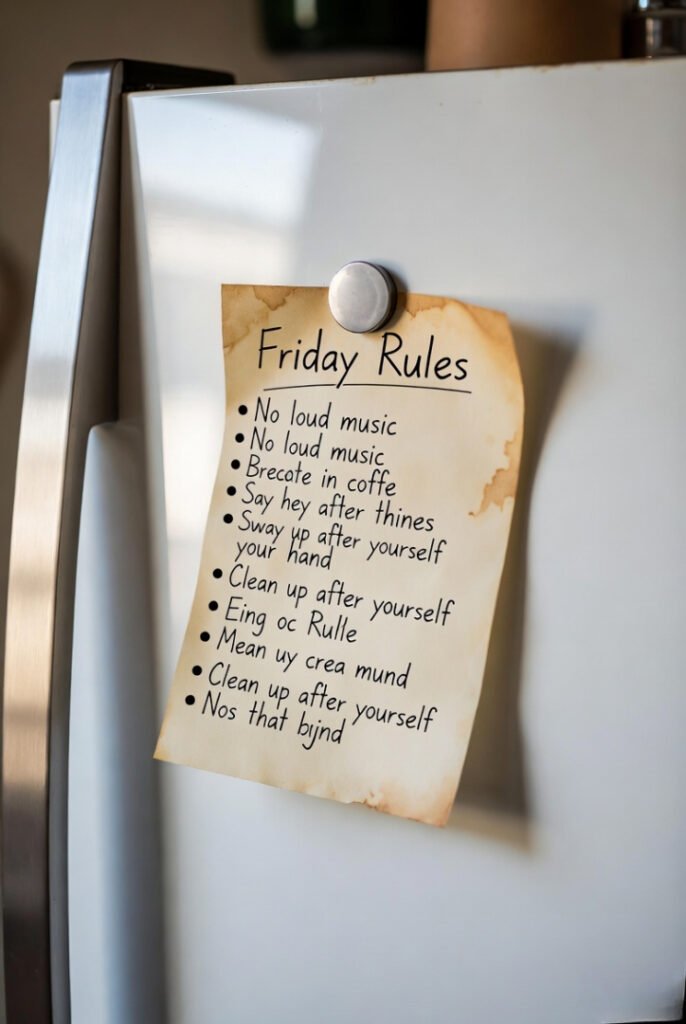 Friday Rules
• No loud music
• No loud music
• Brecate in coffe
• Say hey after thines
• Sway up after yourself
your hand
• Clean up after yourself
• Eing oc Rulle
• Mean uy crea mund
• Clean up after yourself
• Nos that bijnd